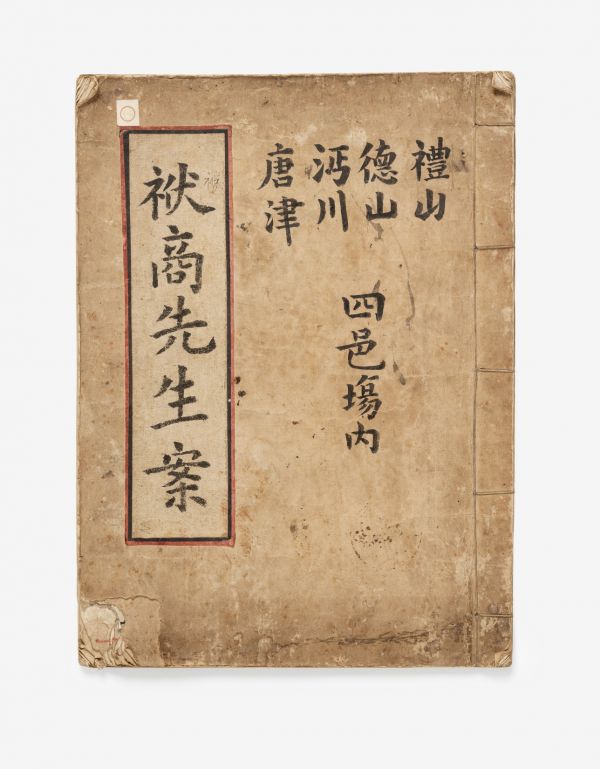 禮山
德山
沔川
唐津
四邑塲內
袱商先生案